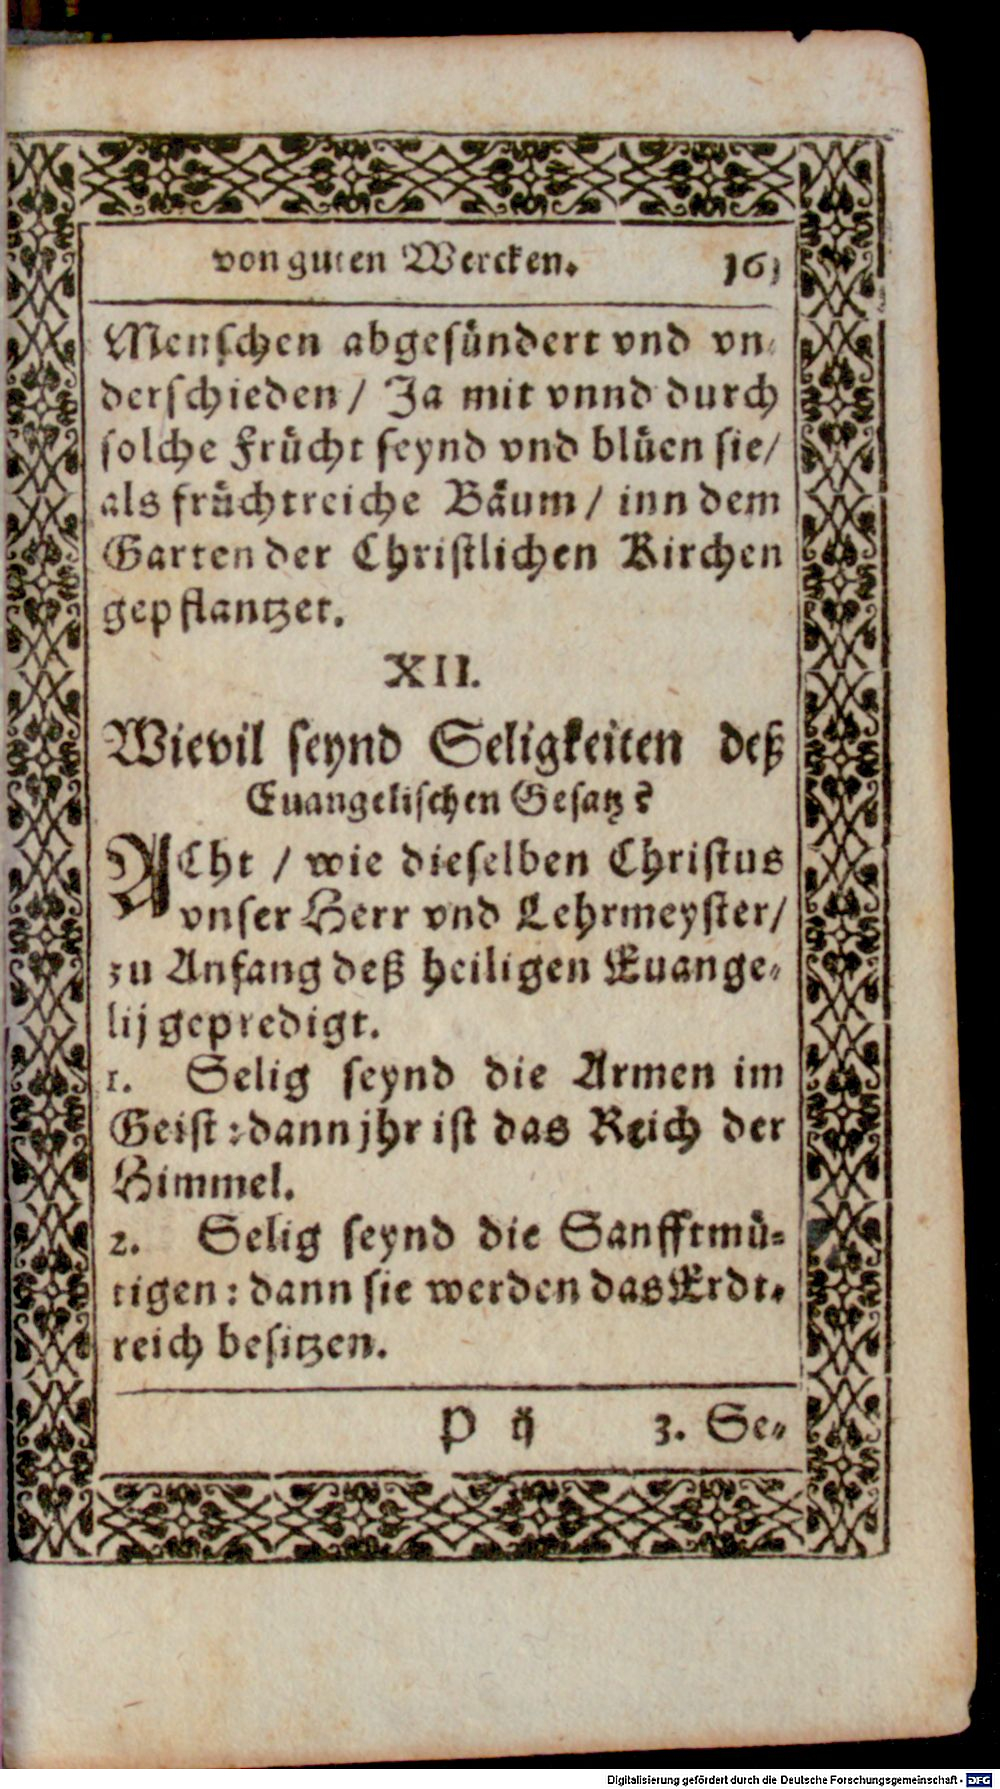 von guten Wercken. 161
Menschen abgesündert vnd vn-
derschieden / Ja mit vnnd durch
solche Frücht seynd vnd blüen sie/
als früchtreiche Bäum / inn dem
Garten der Christlichen Kirchen
gepflantzet.
XII.
Wievil seynd Seligkeiten deß
Euangelischen Gesatz?
ACht / wie dieselben Christus
vnser Herr vnd Lehrmeyster/
zu Anfang deß heiligen Euange-
lij gepredigt.
1. Selig seynd die Armen im
Geist: dann jhr ist das Reich der
Himmel.
2. Selig seynd die Sanfftmü-
tigen: dann sie werden das Erdt-
reich besitzen.
P ij 3. Se-
Digitalisierung gefördert durch die Deutsche Forschungsgemeinschaft - DFG